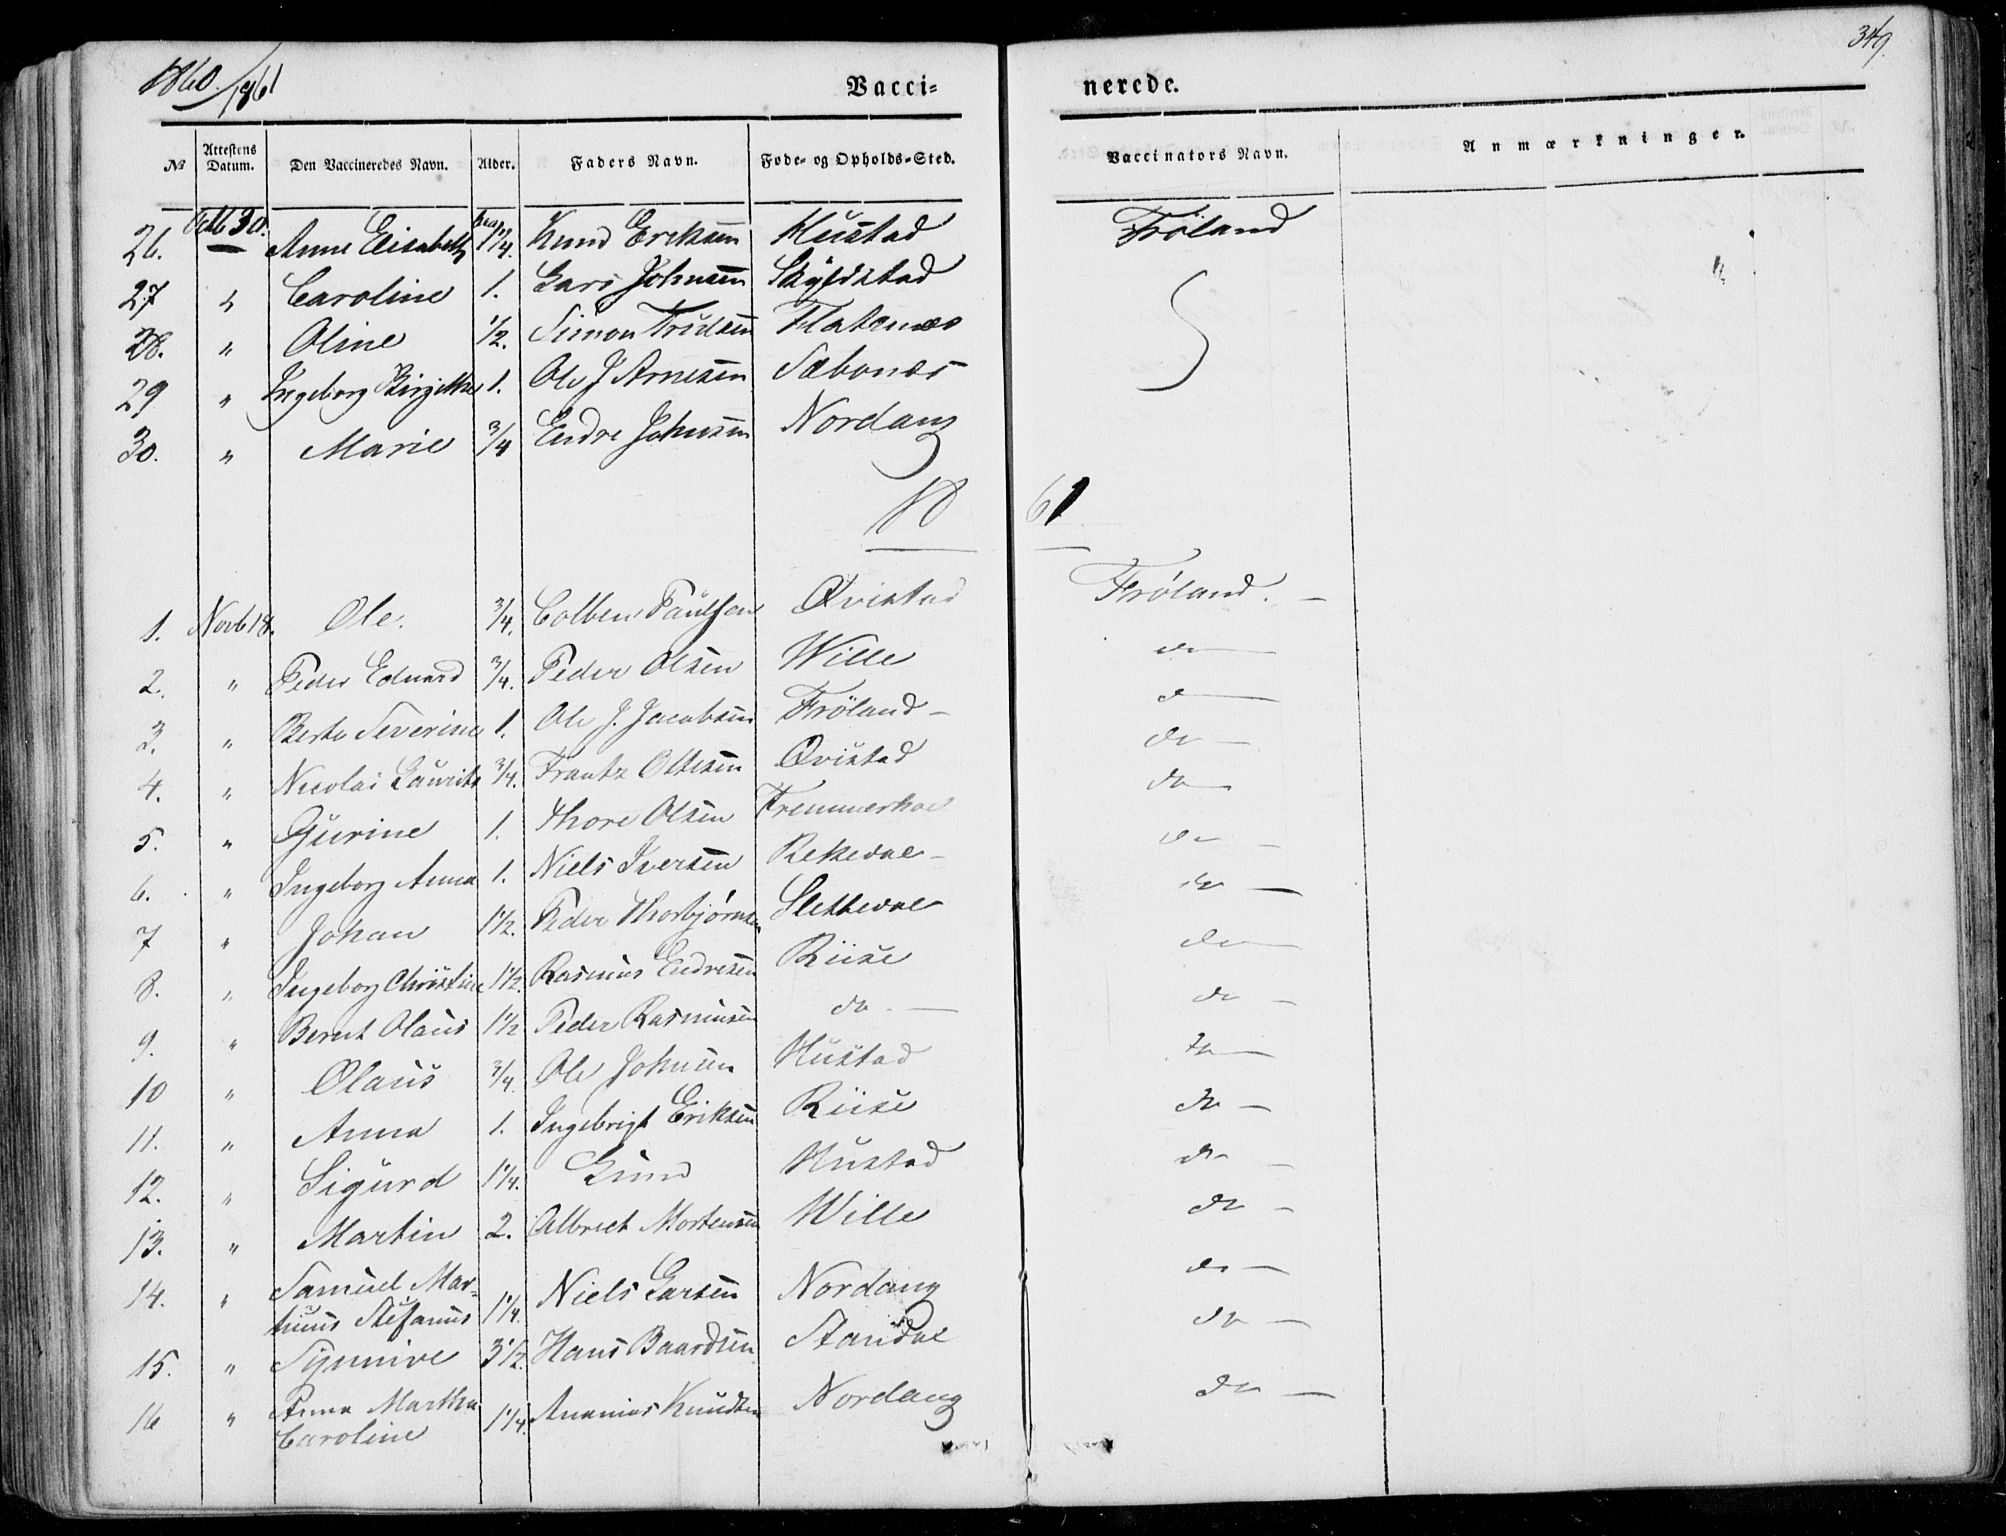 1860/1861
Vacci- nerede.
349.
№ Attestens Datum. Den Vaccineredes Navn. Alder. Faders Navn. Føde- og Opholds-Sted. Vaccinators Navn. Anmærkninger.
26. 30. Anne Elisabeth 1 1/4. Knud Eriksen Hustad Frøland
27 " Caroline 1. Lars Johnsen Skyldstad
28. " Oline 1/2. Simon Flatenæs
29 " Ingeborg Birgitthe 1. Ole J Arnesen Sæbonæs
30. " Marie 3/4 Endre Johnsen Nordang
18 61
1. Novb 18. Ole. 3/4. Colben Paulsen Qvistad Frøland. —
2. " Peder Eduard 3/4. Peder Olsen Wille do —
3. " Berte Severine 1. Ole J. Jacobsen Frøland — do —
4. " Nicolai Laurits 3/4. Frantz Qvistad do —
5. " Gurine 1. Thore Olsen Tremmerhol do —
6. " Ingeborg Anna 1. Niels Iversen Rekedal — do —
7 " Johan 1 1/2. Peder Thorbjørnsen Slettedal do —
8. " Ingeborg Christine 1 1/2. Rasmus Endresen Riise do —
9. " Bernt Olaus 1 1/2 Peder Rasmusen do. — do —
10 " Olaus 3/4. Ole Johnsen Hustad do —
11. " Anna 1. Ingebrigt Eriksen Riise do —
12. " Sigurd 1 1/4. Hustad do —
13. " Martin 2. Albrect Mortensen Wille do —
14. " Samuel Mar-
tinus Stefanus 1 1/4. Niels Larsen Nordang do —
15. " Synnive 3 1/2. Hans Baardsen Standal do —
16 " Anna Martha
Caroline 1 1/4. Ananias Knudsen Nordang do —